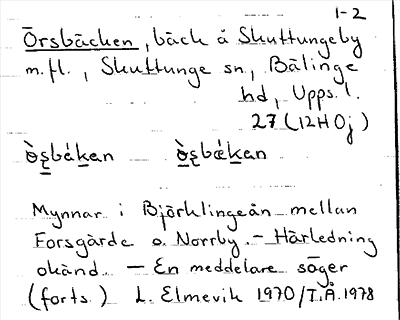 1-2
Örsbäcken, bäck å Skuttungeby
m.fl., Skuttunge sn, Bälinge
hd, Upps. l.
27 (12H0j)
ò̀s̨bɛ́kan ò̀s̨bǽkan
Mynnar i Björklingeån mellan
Forsgärde o. Norrby. – Härledning
okänd. – En meddelare säger
(forts.) L. Elmevik 1970/T.Å. 1978